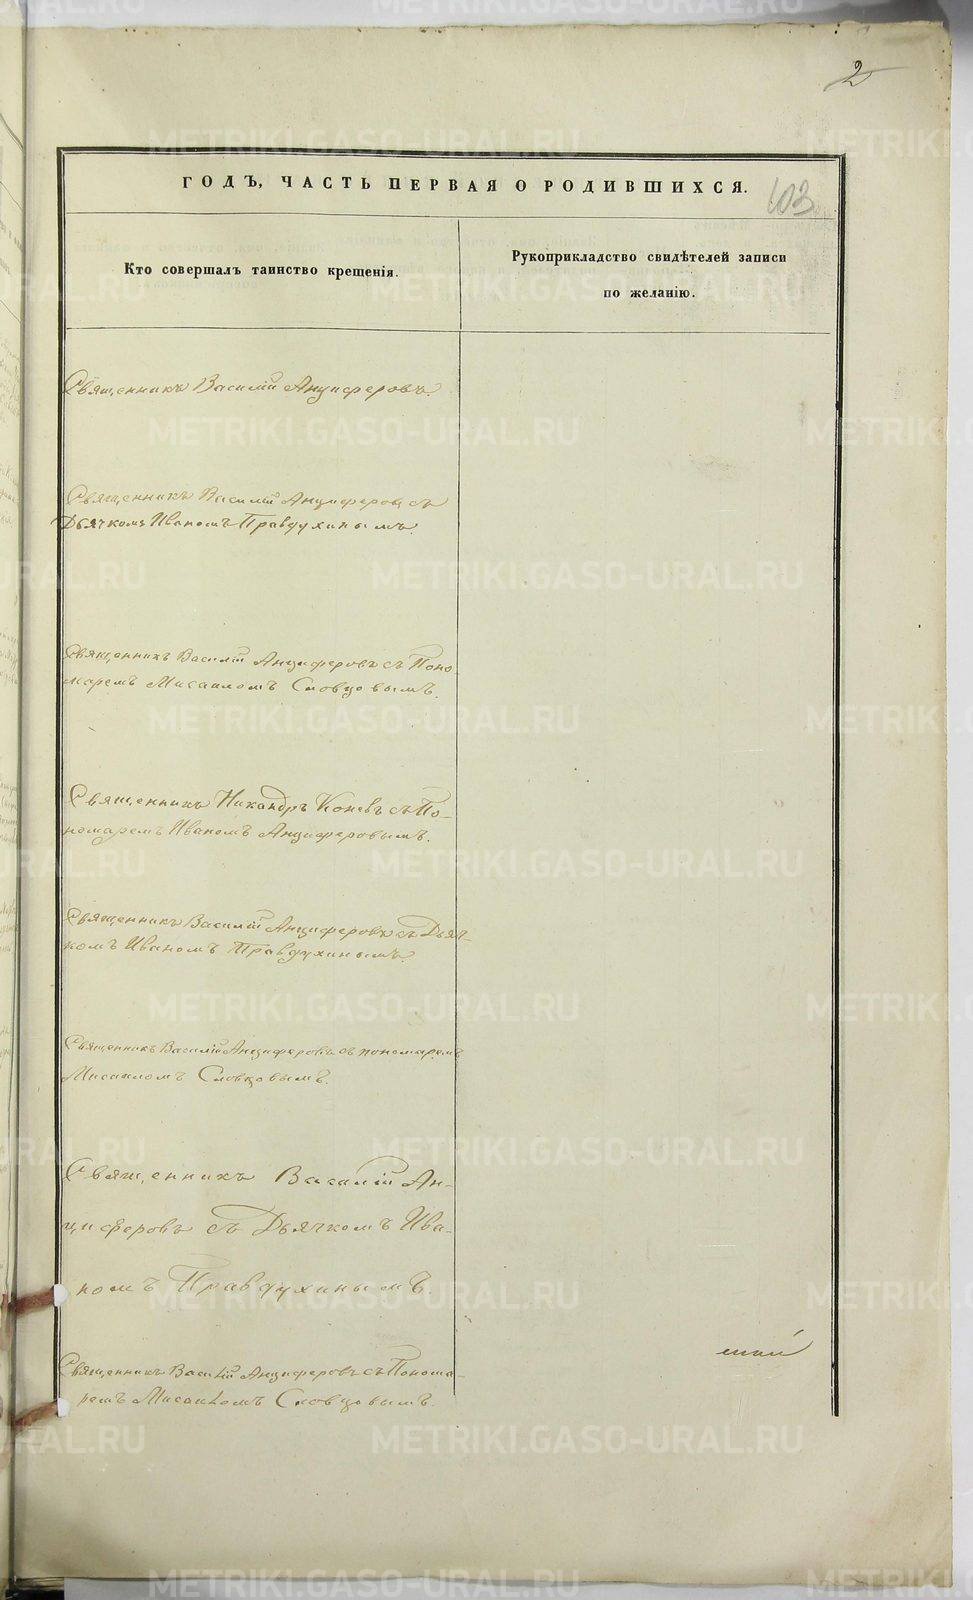 2
ГОДЪ, ЧАСТЬ ПЕРВАЯ О РОДИВШИХСЯ.
103
Кто совершалъ таинство крещенія.
Рукоприкладство свидѣтелей записи
по желанію.
Священникъ Василій Анциферовъ.
Священникъ Василій Анциферов съ
Дьячкомъ Иваномъ Правдухинымъ.
Священникъ Василій Анциферовъ съ Поно-
маремъ Мисаиломъ Словцовымъ.
Священникъ Никандръ Коневъ съ По-
номаремъ Иваномъ Анциферовымъ.
Священникъ Василій Анциферовъ съ Дьяч-
комъ Иваномъ Правдухинымъ.
Священникъ Василій Анциферовъ съ пономаремъ
Мисаиломъ Словцовымъ.
Священникъ Василій Ан-
циферовъ съ Дьячкомъ Ива-
номъ Правдухинымъ.
Священникъ Василій Анциферовъ съ Понома-
ремъ Мисаиломъ Словцовымъ.
METRIKI.GASO-URAL.RU